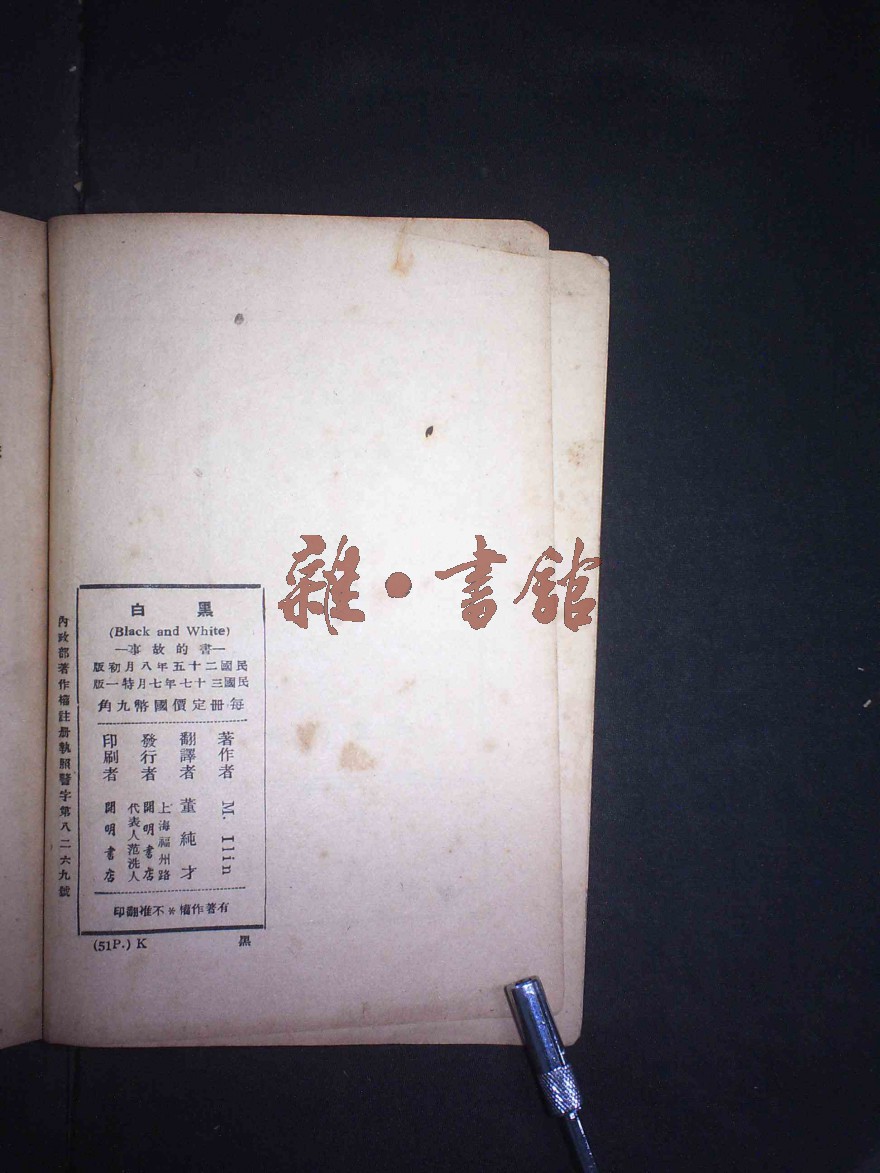 雜・書館
黑白
(Black and White)
—書的故事—
民國二十五年八月初版
民國三十七年七月特一版
每冊定價國幣九角
著作者 M. Ilin
翻譯者 董純才
發行者 上海福州路 開明書店 代表人范洗人
印刷者 開明書店
有著作權＊不准翻印
(51P.) K 黑
內政部著作權註册執照警字第八二六九號